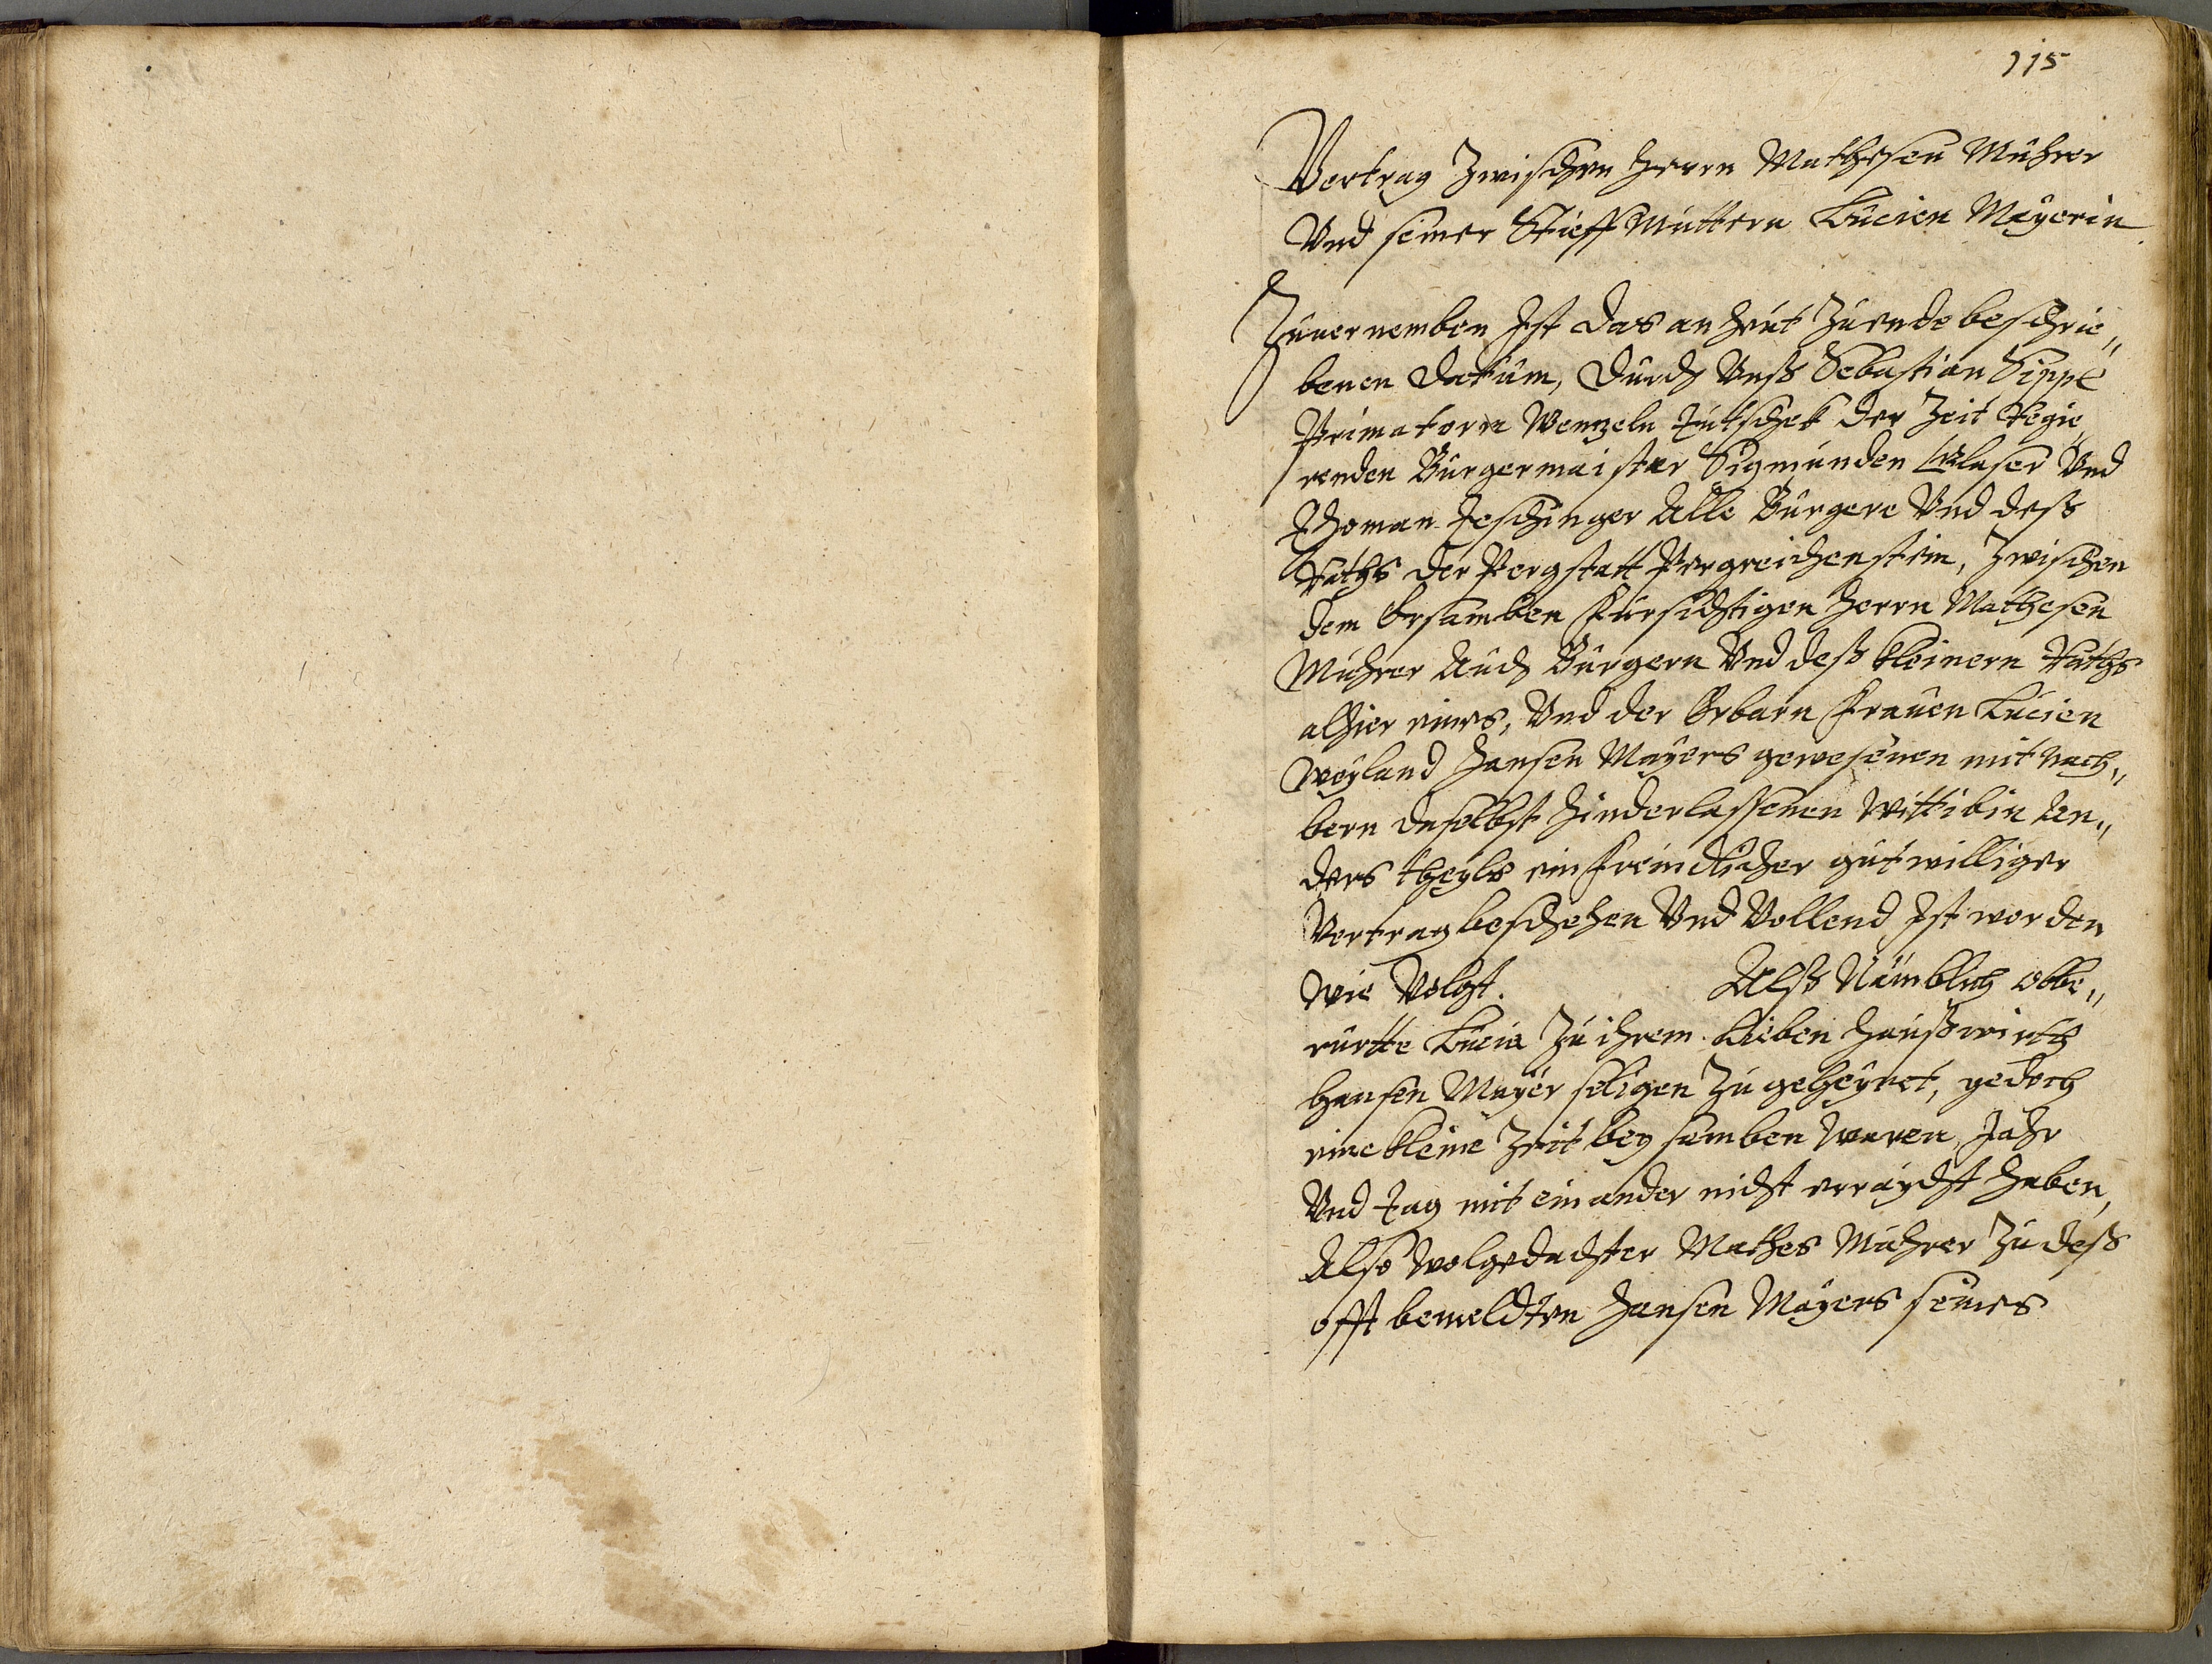 115
Vertrag Zwischen Herrn Mathesen Mührer
Vnd seiner Stieff Muttern Lucien Mayerin
Zuuernemben Ist das an heut Zu ende beschrie„
benen datum, durch Vnß Sebastian Sippl
Primatorn Wenzeln der Zeit Regie„
renden Burgermaister Sigmunden Glaser Vnd
Thoman Jeschinger Alle Burgere Vnd deß
Raths der Pergstatt Pergreichenstein, Zwischen
dem Ersamben Fürsichtigen Herrn Mathesen
Mührer Auch Burgern Vnd deß kleinern Raths
alhier eines, Vnd der Erbarn Frauen Lucien
Weyland Hansen Mayers gewesenen mit nach„
bern daselbst hinderlassenen Wittibin An„
ders theyls ein freindlicher gutwilliger
Vertrag beschehen Vnd Vollend Ist worden
Wie Volgt. Alß Nämblich obbe„
rürtte Lucia Zu ihrem lieben haußwirth
Hansen Mayer seligen Zu geheyret, yedoch
eine kleine Zeit bey samben waren, Jahr
Vnd tag mit einander nicht erraycht haben,
Also wolgedachter Mathes Mührer Zu deß
offt bemeldten Hansen Mayers seines